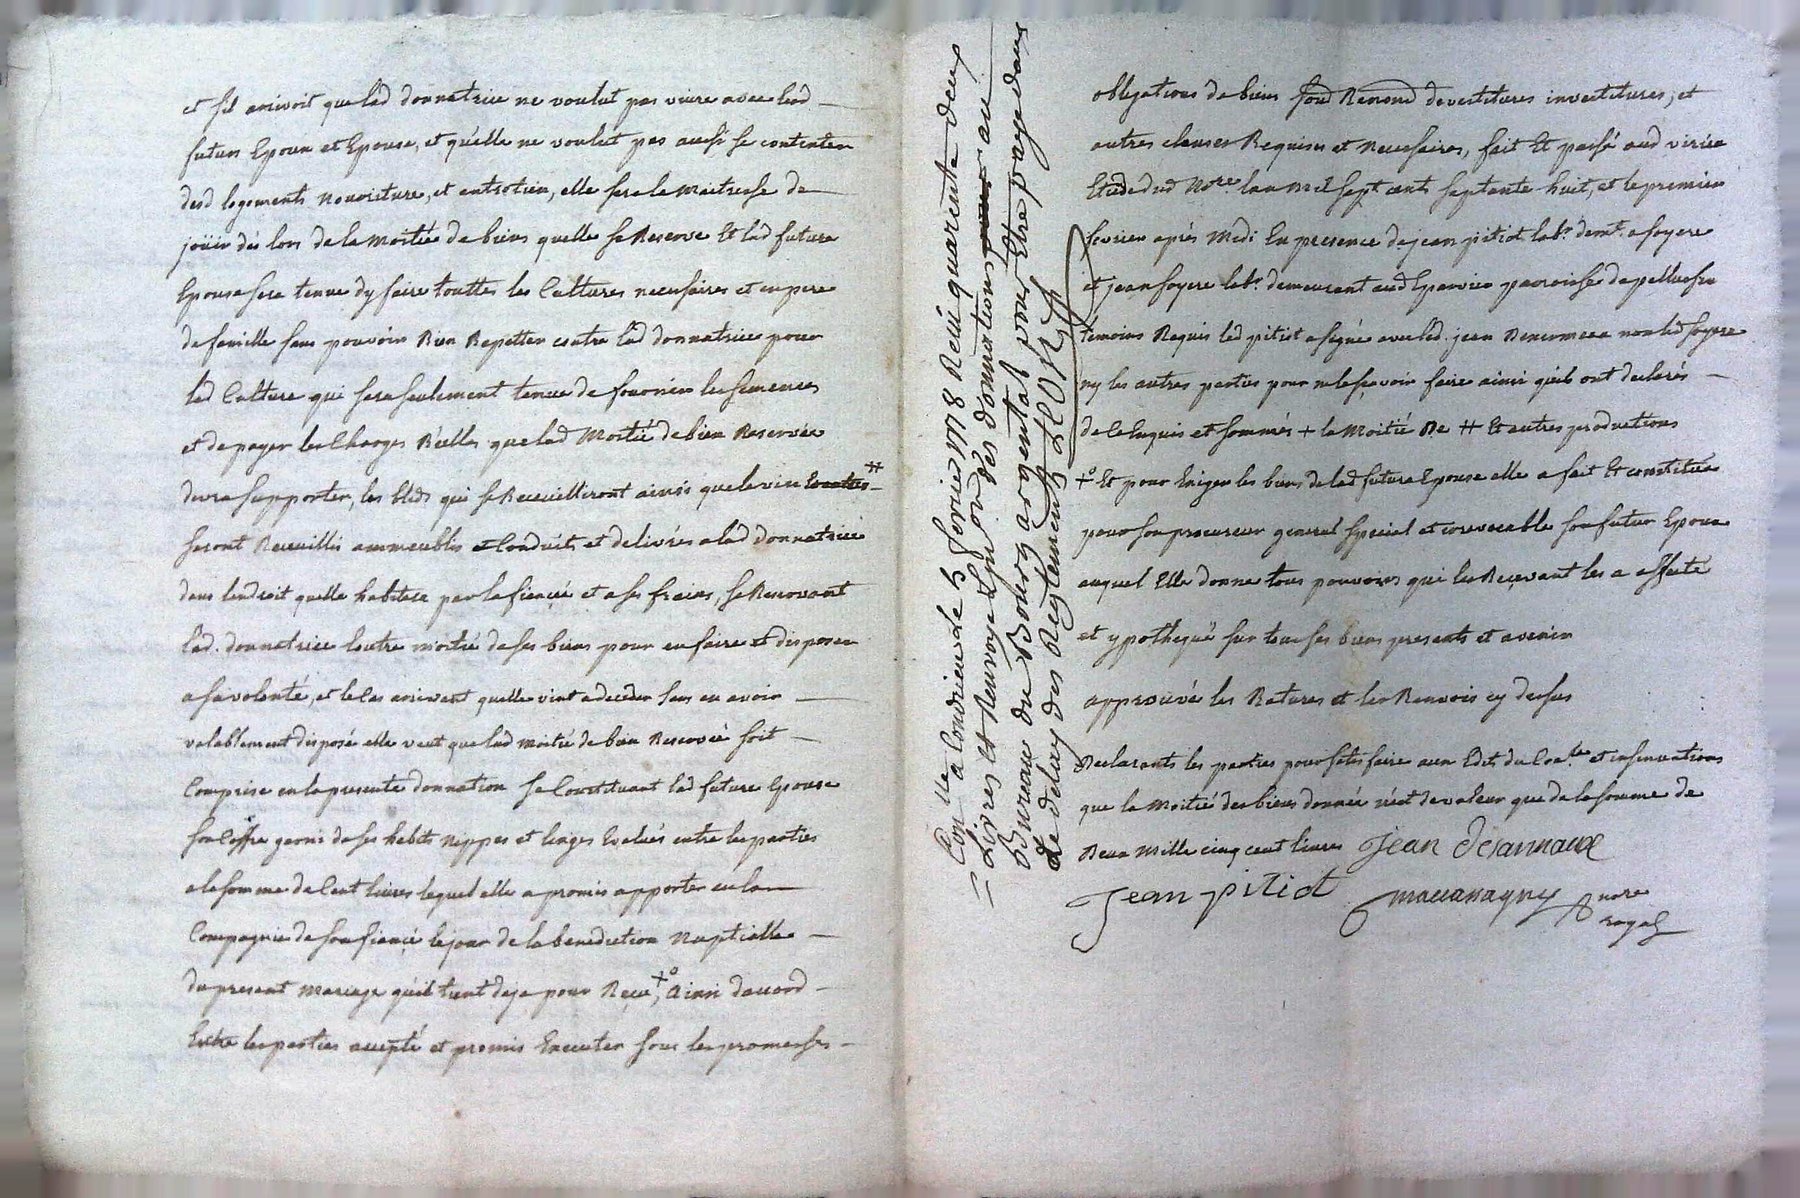 et sil arrivoit que lad donnatrice ne voulut pas vivre avec lesd
futurs Epoux et Epouse, et quelle ne voulut pas aussi se contenter
desd logements nourriture, et entretien, elle sera la maitresse de
joüir dés lors de la moitié de biens quelle se Reserve Et lad future
Epouse sera tenue dy faire touttes les Cultures necessaires et en pere
de famille sans pouvoir Rien Repetter contre lad donnatrice pour
lad Culture qui sera seulement tenue de fournir les semences
et de payer les Charges Réelles que lad Moitié de bien Reservée
devra supporter, les bleds qui se Recueilliront ainsi que le vin #
seront Recueillis ammeublés et Conduits et delivrés a lad Donnatrice
dans lendroit quelle habitera par le fiancé et a ses fraix, se Reservant
lad. donnatrice lautre moitié de ses biens pour en faire et disposer
a sa volonté, et le Cas arrivant quelle vint a deceder sans en avoir
valablement disposé elle veut que lad moitié de bien Reservée soit
Comprise en la presente donnation se Constituant lad future Epouse
son Coffre garni de ses habits Nippes et linges Evalués entre les parties
a la somme de Cent livres lequel elle a promis apporter en la
Compagnie de son fiancé le jour de la benediction Nuptialle
du present mariage qu'il tient deja pour Reçu, +° Ainsi daccord
Entre les parties accepté et promis Executer sous les promesses
Con.lle a Condrieu le 5 fevrier 1778 Reçu quarante deux
Livres et Renvoyé les dés donnations au
Bureau du Bourg argental pour Etre payé dans
Le delay des Reglements
obligations de biens devestitures investitures, et
autres clauses Requises et Necessaires, fait Et passé aud virieu
Etude dud No.re lan mil sept cents septante huit, et le premier
fevrier après Midi En presence de jean pitiot lab.r dem.t a foyere
et jean foyere lab.r demeurant aud Eparvier parroisse de pellussin
témoins Requis led pitiot a signé avec led. jean non led foyere
ny les autres parties pour ne le sçavoir faire ainsi qu'ils ont declarés
de ce Enquis et sommés + la Moitié De # Et autres productions
+° Et pour Exiger les biens de lad future Epouse elle a fait Et constitué
pour son procureur general special et irrevocable son futur Epoux
auquel Elle donne tous pouvoirs qui les Reçevant les a assuté
et ypothequé sur tous ses biens presents et avenir
approuvés les Ratures et les Renvois cy dessus
Declarants les parties pour satisfaire aux Edits du Con.lle et insinuations
que la Moitié des biens donnée n'est de valeur que de la somme de
Deux Mille cinq cent livres
jean pitiot
nore
royal